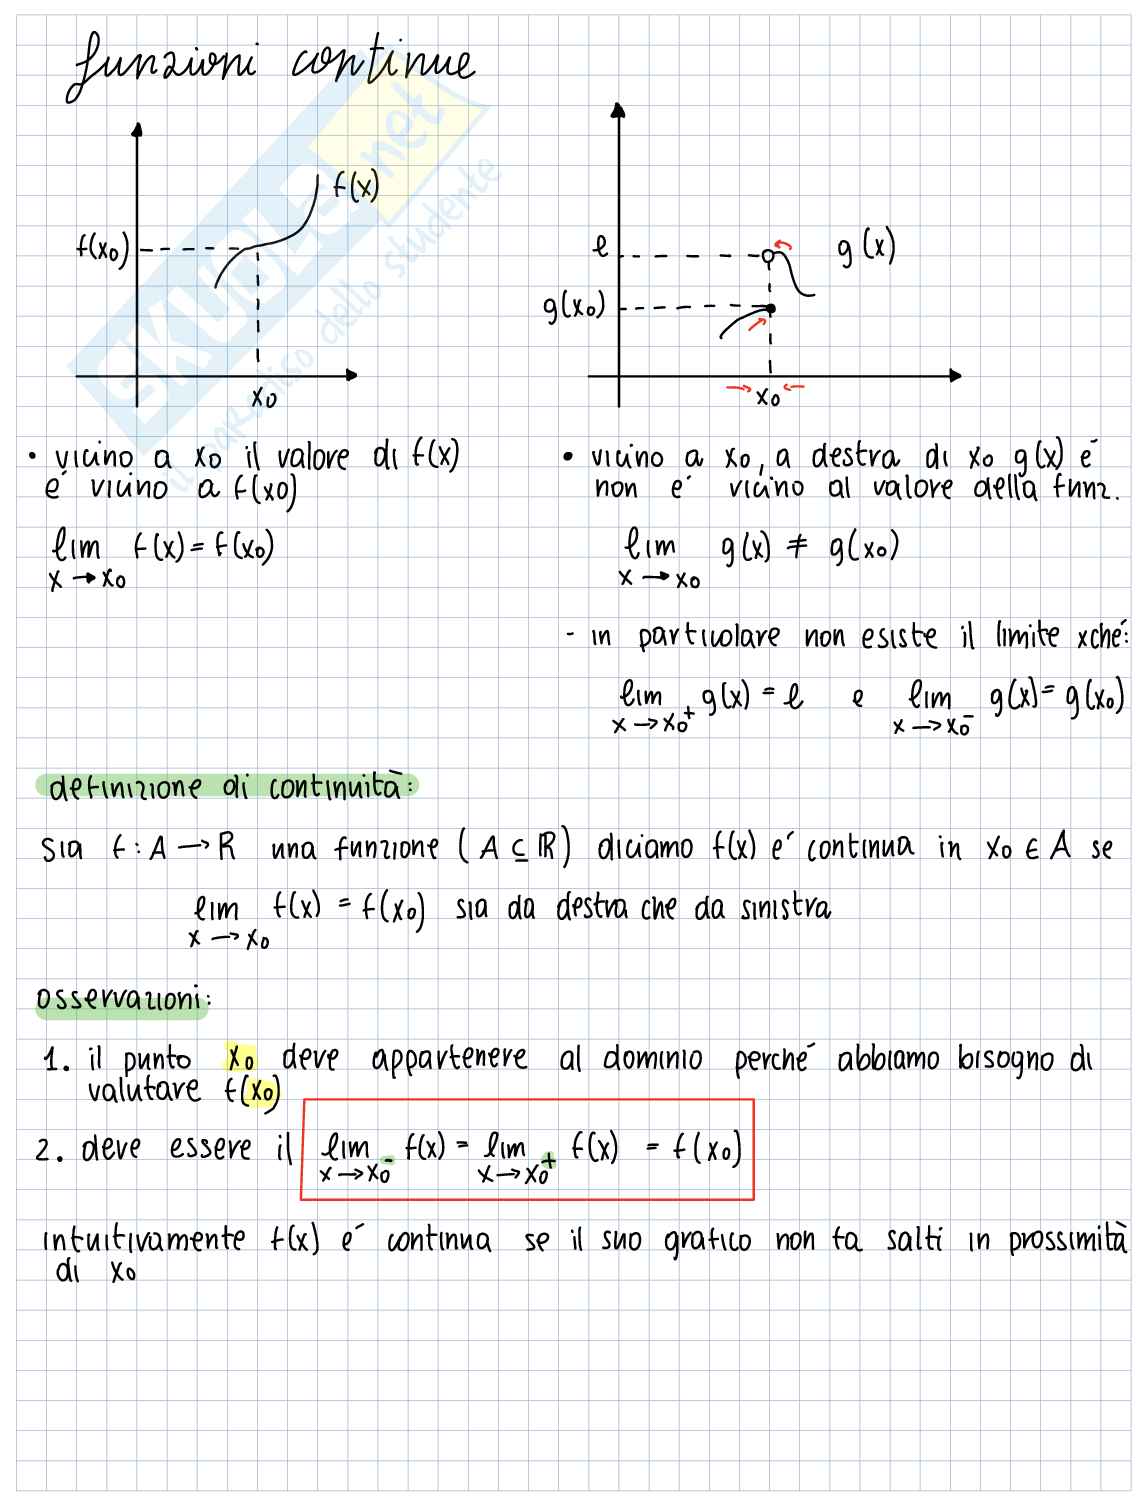 funzioni continue
SKUOLA.net
il paradiso dello studente
f(x)
f(x₀)
x₀
g(x)
l
g(x₀)
x₀
• vicino a x₀ il valore di f(x)
é vicino a f(x₀)
lim f(x) = f(x₀)
x → x₀
• vicino a x₀, a destra di x₀ g(x) é
non é vicino al valore della funz.
lim g(x) ≠ g(x₀)
x → x₀
- in particolare non esiste il limite xché:
lim g(x) = l e lim g(x) = g(x₀)
x → x₀⁺ x → x₀⁻
definizione di continuità:
sia f: A → R una funzione (A ⊆ ℝ) diciamo f(x) é continua in x₀ ∈ A se
lim f(x) = f(x₀) sia da destra che da sinistra
x → x₀
osservazioni:
1. il punto x₀ deve appartenere al dominio perché abbiamo bisogno di
valutare f(x₀)
2. deve essere il lim f(x) = lim f(x) = f(x₀)
x → x₀⁻ x → x₀⁺
intuitivamente f(x) é continua se il suo grafico non fa salti in prossimità
di x₀